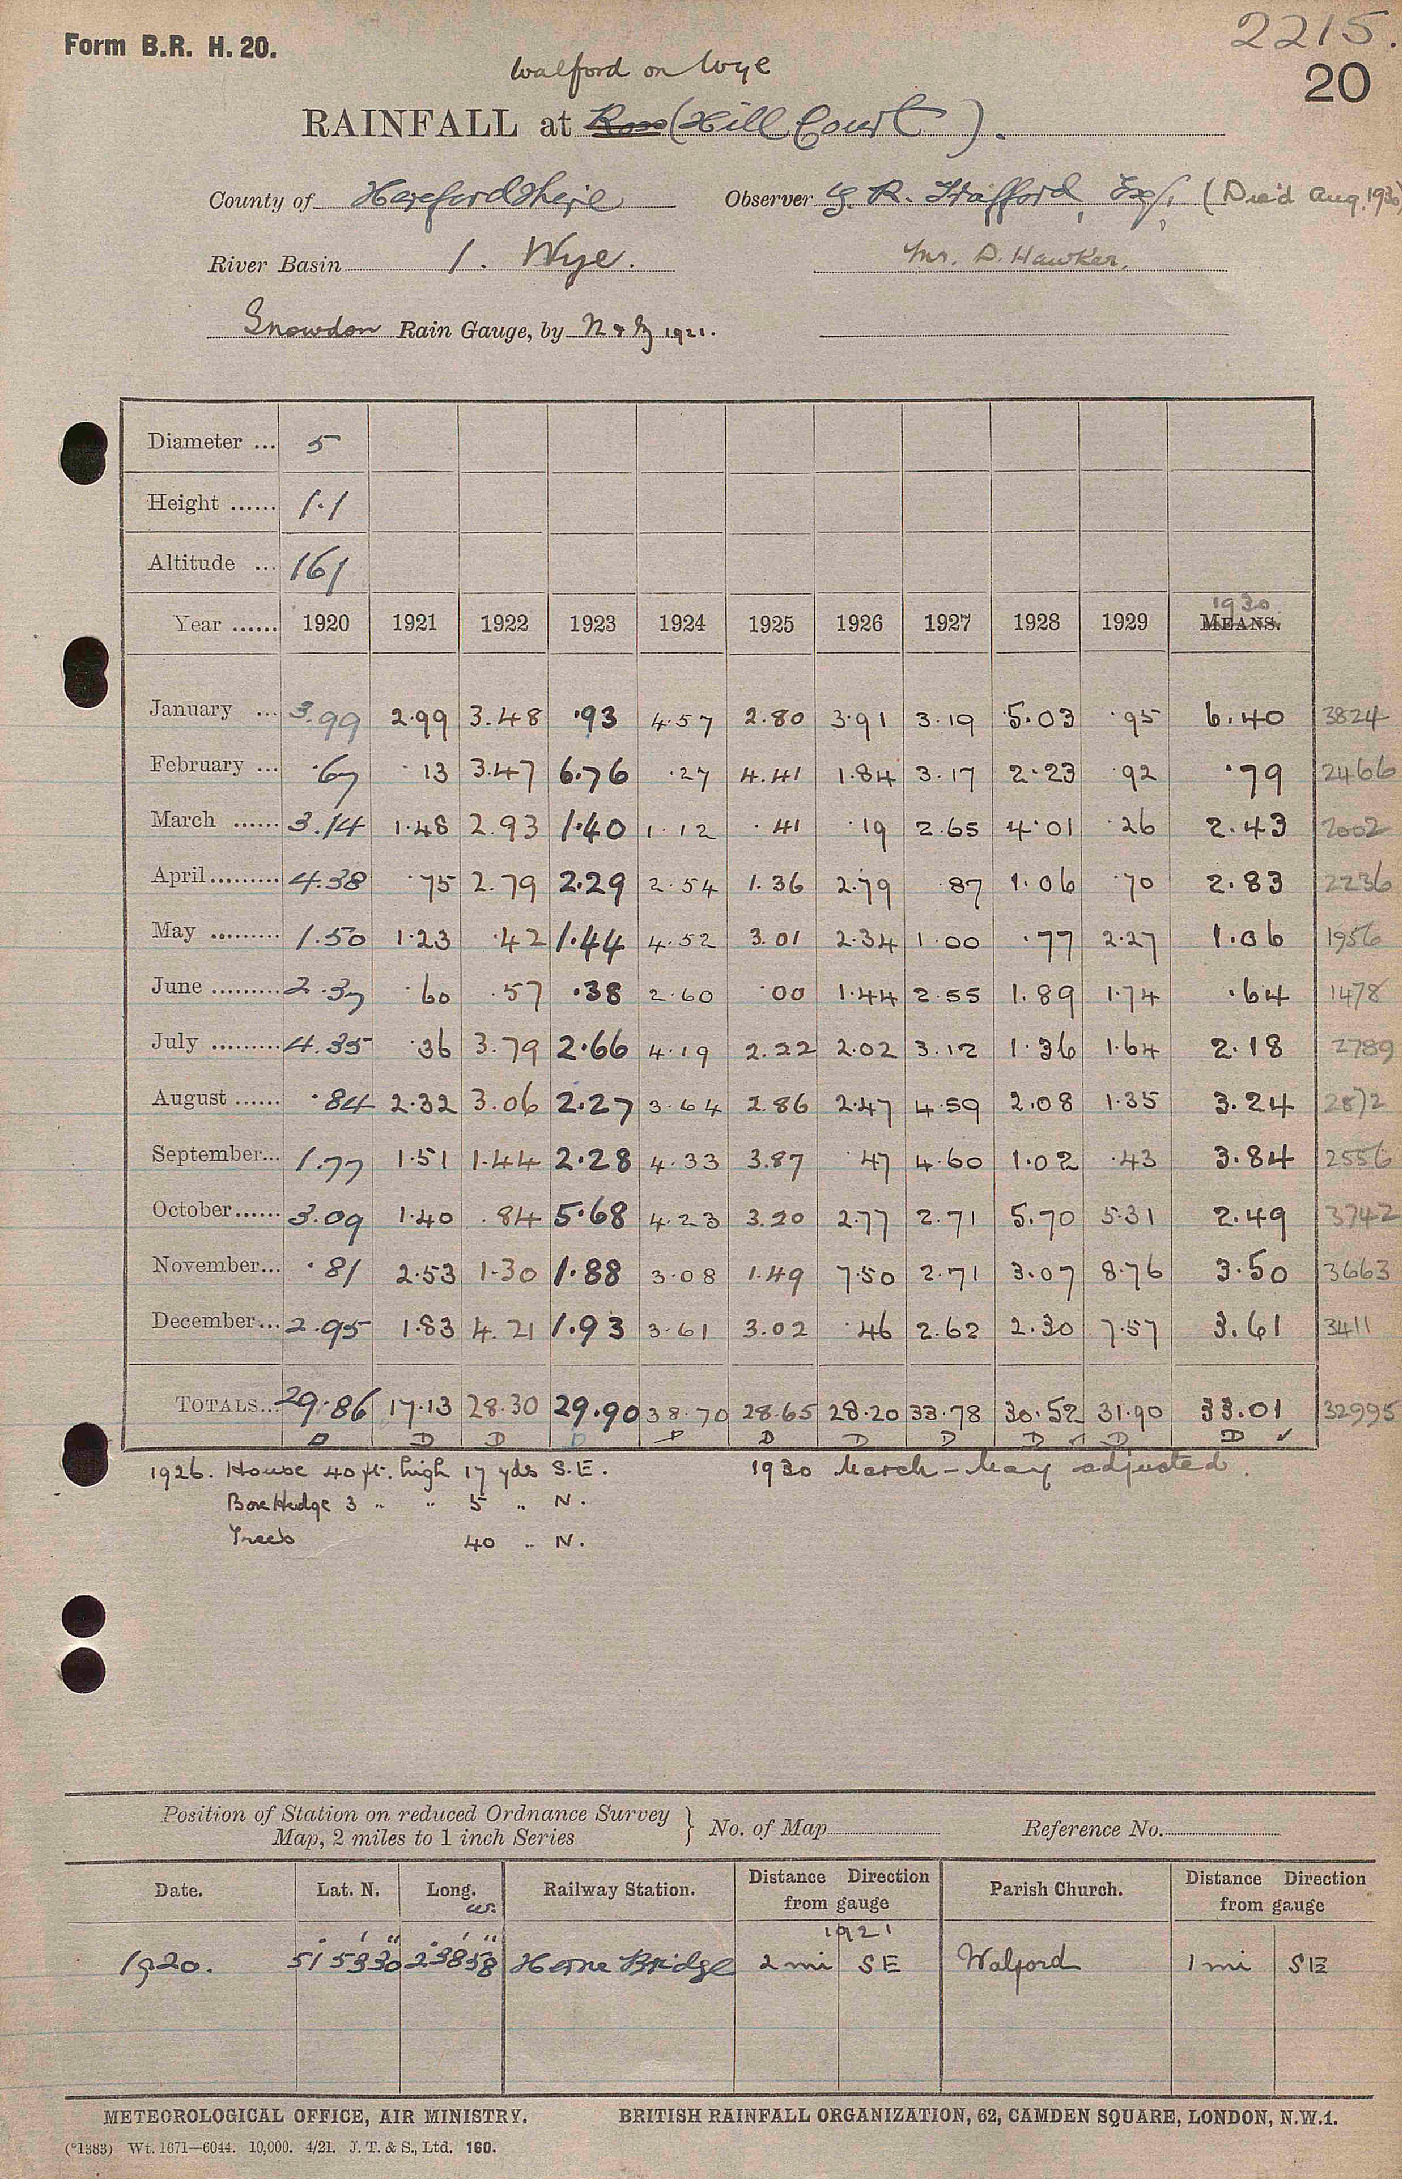 2215.
Form B.R. H. 20.
20
Walford on Wye
RAINFALL at Ross (Hill Court).
County of Herefordshire Observer G. R. Trafford, Esq. (Died Aug. 1930)
River Basin 1. Wye. Mr. D. Hawker.
Snowdon Rain Gauge, by N & Z 1921.
Diameter ... 5
Height ...... 1.1
Altitude ... 161
1930
Year ...... 1920 1921 1922 1923 1924 1925 1926 1927 1928 1929 MEANS.
January ... 3.99 2.99 3.48 .93 4.57 2.80 3.91 3.19 5.03 .95 6.40 3824
February ... .67 .13 3.47 6.76 .27 4.41 1.84 3.17 2.23 .92 .79 2466
March ...... 3.14 1.48 2.93 1.40 1.12 .41 .19 2.65 4.01 .26 2.43 2002
April ......... 4.38 .75 2.79 2.29 2.54 1.36 2.79 .87 1.06 .70 2.83 2236
May ......... 1.50 1.23 .42 1.44 4.52 3.01 2.34 1.00 .77 2.27 1.06 1956
June ......... 2.37 .60 .57 .38 2.60 .00 1.44 2.55 1.89 1.74 .64 1478
July ......... 4.35 .36 3.79 2.66 4.19 2.22 2.02 3.12 1.36 1.64 2.18 2789
August ...... .84 2.32 3.06 2.27 3.64 2.86 2.47 4.59 2.08 1.35 3.24 2872
September... 1.77 1.51 1.44 2.28 4.33 3.87 .47 4.60 1.02 .43 3.84 2556
October...... 3.09 1.40 .84 5.68 4.23 3.20 2.77 2.71 5.70 5.31 2.49 3742
November... .81 2.53 1.30 1.88 3.08 1.49 7.50 2.71 3.07 8.76 3.50 3663
December... 2.95 1.83 4.21 1.93 3.61 3.02 .46 2.62 2.30 7.57 3.61 3411
TOTALS... 29.86 17.13 28.30 29.90 38.70 28.65 28.20 33.78 30.52 31.90 33.01 32995
D D D D D D D D D D D ✓
1926. House 40 ft. high 17 yds S.E. 1930 March - May adjusted.
Box Hedge 3 " " 5 " N.
Trees 40 " N.
Position of Station on reduced Ordnance Survey Map, 2 miles to 1 inch Series } No. of Map Reference No.
Date. Lat. N. Long. W. Railway Station. Distance Direction from gauge Parish Church. Distance Direction from gauge
1921
1920. 51° 53' 30" 2° 38' 58" Kerne Bridge 2 mi SE Walford 1 mi SE
METEOROLOGICAL OFFICE, AIR MINISTRY. BRITISH RAINFALL ORGANIZATION, 62, CAMDEN SQUARE, LONDON, N.W.1.
(*1383) Wt. 1671—6044. 10,000. 4/21. J. T. & S., Ltd. 160.